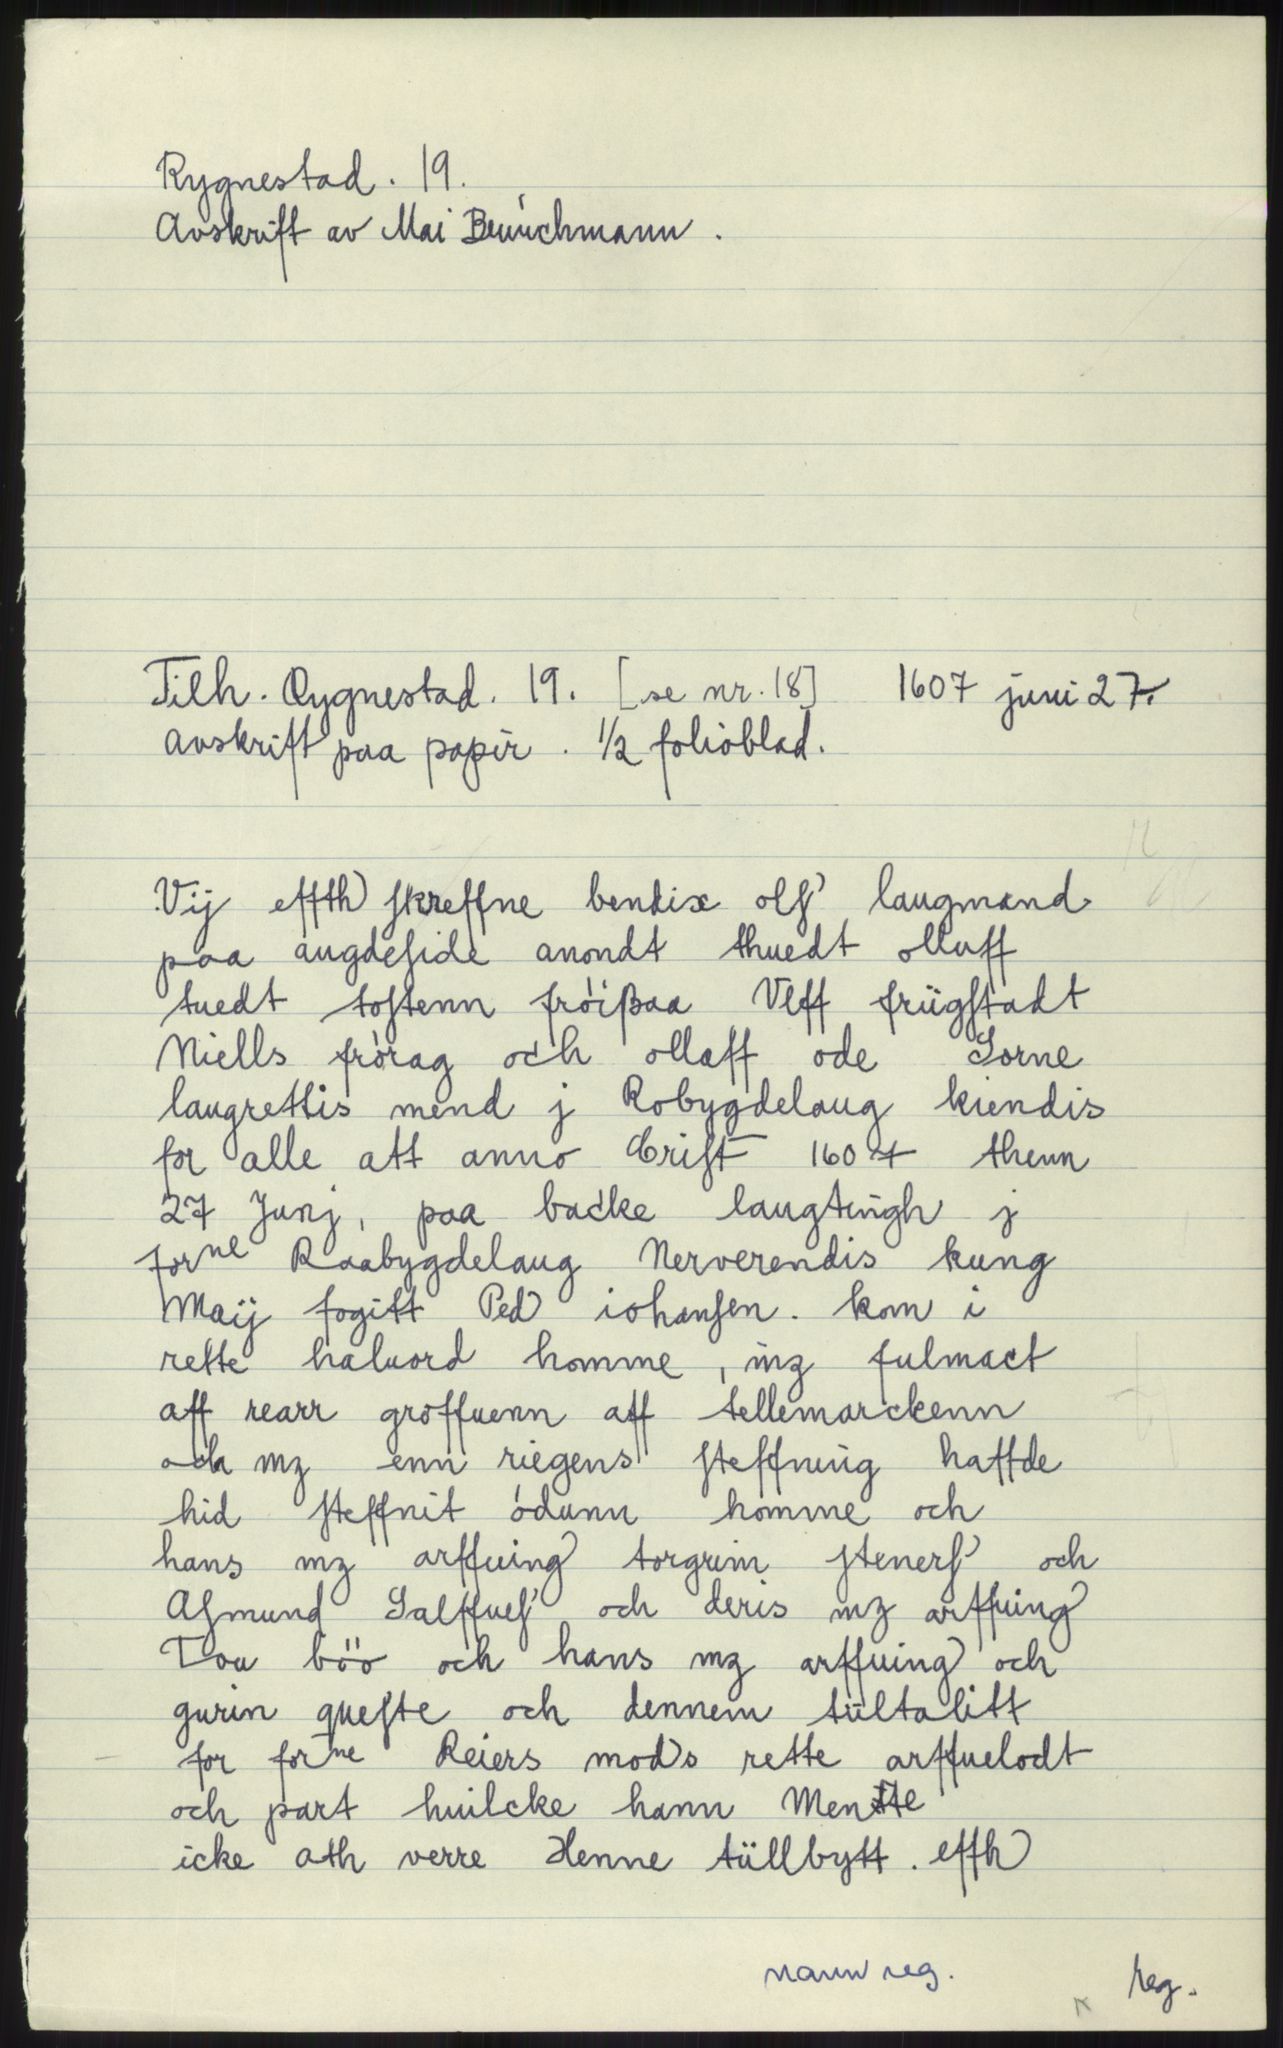 Rygnestad. 19.
Avskrift av Mai Beünchmann.
Tilh. Rygnestad. 19. [se nr. 18] 1607 juni 27.
avskrift paa papir. 1/2 folioblad.
Vij effth skreffne bendix olss laugmand
paa augdeside anondt thuedt olluff
tuedt tostenn fröißaa Vlff frügstadt
Niells frörag och ollaff ode Sorne
laugrettis mend j Robygdelaug kiendis
for alle att anno Crist 1607 thenn
27 Junj, paa backe laugtingh j
forne Raabygdelaug Nerverendis kung
Maij fogitt Ped iohansen. kom i
rette haluord homme, mz fulmact
aff rearr groffuenn aff tellemarckenn
och mz enn riegens steffning haffde
hid steffnit ódunn homme och
hans mz arffuing torgrim steners och
Asmund Salffues och deris mz arffuing
Tou böo och hans mz arffuing och
gurin queste och dennem tültalitt
for forne Reiers mods rette arffuelodt
och part huilcke hann Mente
icke ath verre Henne tüllbytt. effh
navn reg.
reg.